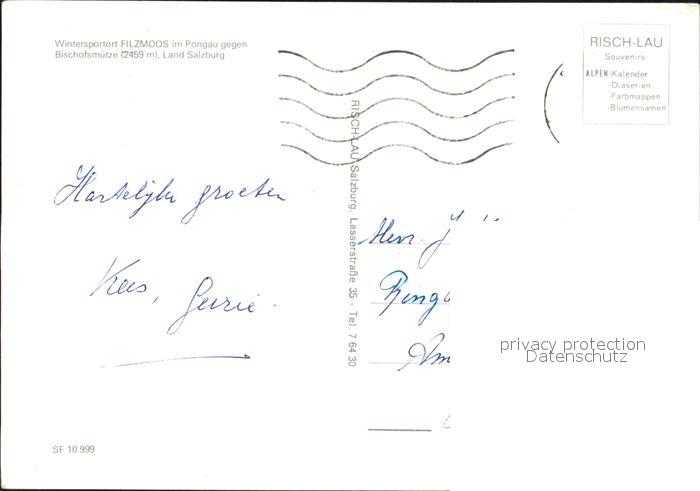 Wintersportort FILZMOOS im Pongau gegen
Bischofsmütze (2459 m), Land Salzburg
RISCH-LAU
Souvenirs:
ALPEN-Kalender
-Diaserien
-Farbmappen
-Blumensamen
RISCH-LAU Salzburg, Lasserstraße 35 - Tel. 7 64 30
Hartelijke groeten
Kees,
Mevr. J
privacy protection
Datenschutz
SF 10.999